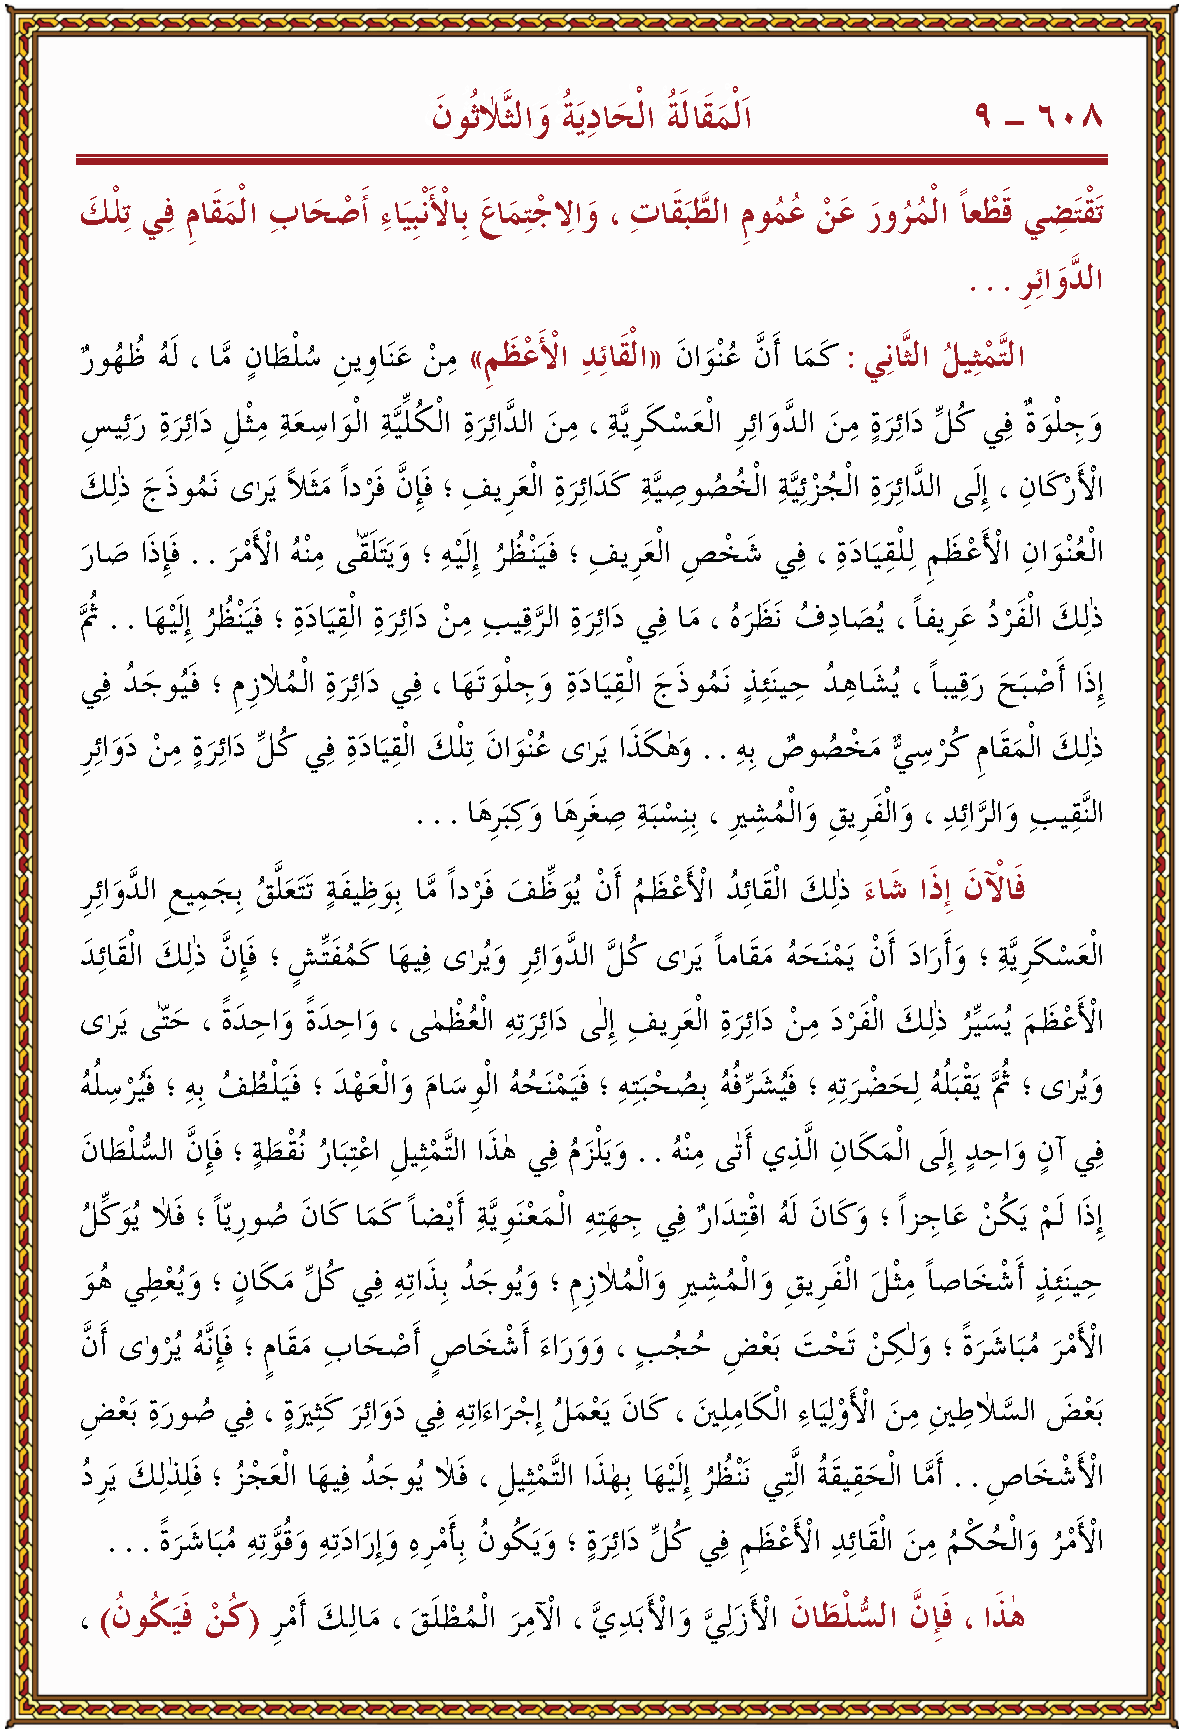 ٦٠٨ – ٩ اَلْمَقَالَةُ الْحَادِيَةُ وَالثَّلاٰثُونَ
تَقْتَضِي قَطْعاً الْمُرُورَ عَنْ عُمُومِ الطَّبَقَاتِ ، وَالِاجْتِمَاعَ بِالْأَنْبِيَاءِ أَصْحَابِ الْمَقَامِ فِي تِلْكَ
الدَّوَائِرِ . . .
التَّمْثِيلُ الثَّانِي : كَمَا أَنَّ عُنْوَانَ «الْقَائِدِ الْأَعْظَمِ» مِنْ عَنَاوِينِ سُلْطَانٍ مَّا ، لَهُ ظُهُورٌ
وَجِلْوَةٌ فِي كُلِّ دَائِرَةٍ مِنَ الدَّوَائِرِ الْعَسْكَرِيَّةِ ، مِنَ الدَّائِرَةِ الْكُلِّيَّةِ الْوَاسِعَةِ مِثْلِ دَائِرَةِ رَئِيسِ
الْأَرْكَانِ ، إِلَى الدَّائِرَةِ الْجُزْئِيَّةِ الْخُصُوصِيَّةِ كَدَائِرَةِ الْعَرِيفِ ؛ فَإِنَّ فَرْداً مَثَلاً يَرٰى نَمُوذَجَ ذٰلِكَ
الْعُنْوَانِ الْأَعْظَمِ لِلْقِيَادَةِ ، فِي شَخْصِ الْعَرِيفِ ؛ فَيَنْظُرُ إِلَيْهِ ؛ وَيَتَلَقّٰى مِنْهُ الْأَمْرَ . . فَإِذَا صَارَ
ذٰلِكَ الْفَرْدُ عَرِيفاً ، يُصَادِفُ نَظَرَهُ ، مَا فِي دَائِرَةِ الرَّقِيبِ مِنْ دَائِرَةِ الْقِيَادَةِ ؛ فَيَنْظُرُ إِلَيْهَا . . ثُمَّ
إِذَا أَصْبَحَ رَقِيباً ، يُشَاهِدُ حِينَئِذٍ نَمُوذَجَ الْقِيَادَةِ وَجِلْوَتَهَا ، فِي دَائِرَةِ الْمُلاٰزِمِ ؛ فَيُوجَدُ فِي
ذٰلِكَ الْمَقَامِ كُرْسِيٌّ مَخْصُوصٌ بِهِ . . وَهٰكَذَا يَرٰى عُنْوَانَ تِلْكَ الْقِيَادَةِ فِي كُلِّ دَائِرَةٍ مِنْ دَوَائِرِ
النَّقِيبِ وَالرَّائِدِ ، وَالْفَرِيقِ وَالْمُشِيرِ ، بِنِسْبَةِ صِغَرِهَا وَكِبَرِهَا . . .
فَالْآنَ إِذَا شَاءَ ذٰلِكَ الْقَائِدُ الْأَعْظَمُ أَنْ يُوَظِّفَ فَرْداً مَّا بِوَظِيفَةٍ تَتَعَلَّقُ بِجَمِيعِ الدَّوَائِرِ
الْعَسْكَرِيَّةِ ؛ وَأَرَادَ أَنْ يَمْنَحَهُ مَقَاماً يَرٰى كُلَّ الدَّوَائِرِ وَيُرٰى فِيهَا كَمُفَتِّشٍ ؛ فَإِنَّ ذٰلِكَ الْقَائِدَ
الْأَعْظَمَ يُسَيِّرُ ذٰلِكَ الْفَرْدَ مِنْ دَائِرَةِ الْعَرِيفِ إِلٰى دَائِرَتِهِ الْعُظْمٰى ، وَاحِدَةً وَاحِدَةً ، حَتّٰى يَرٰى
وَيُرٰى ؛ ثُمَّ يَقْبَلُهُ لِحَضْرَتِهِ ؛ فَيُشَرِّفُهُ بِصُحْبَتِهِ ؛ فَيَمْنَحُهُ الْوِسَامَ وَالْعَهْدَ ؛ فَيَلْطُفُ بِهِ ؛ فَيُرْسِلُهُ
فِي آنٍ وَاحِدٍ إِلَى الْمَكَانِ الَّذِي أَتٰى مِنْهُ . . وَيَلْزَمُ فِي هٰذَا التَّمْثِيلِ اعْتِبَارُ نُقْطَةٍ ؛ فَإِنَّ السُّلْطَانَ
إِذَا لَمْ يَكُنْ عَاجِزاً ؛ وَكَانَ لَهُ اقْتِدَارٌ فِي جِهَتِهِ الْمَعْنَوِيَّةِ أَيْضاً كَمَا كَانَ صُورِيّاً ؛ فَلاٰ يُوَكِّلُ
حِينَئِذٍ أَشْخَاصاً مِثْلَ الْفَرِيقِ وَالْمُشِيرِ وَالْمُلاٰزِمِ ؛ وَيُوجَدُ بِذَاتِهِ فِي كُلِّ مَكَانٍ ؛ وَيُعْطِي هُوَ
الْأَمْرَ مُبَاشَرَةً ؛ وَلٰكِنْ تَحْتَ بَعْضِ حُجُبٍ ، وَوَرَاءَ أَشْخَاصٍ أَصْحَابِ مَقَامٍ ؛ فَإِنَّهُ يُرْوٰى أَنَّ
بَعْضَ السَّلاٰطِينِ مِنَ الْأَوْلِيَاءِ الْكَامِلِينَ ، كَانَ يَعْمَلُ إِجْرَاءَاتِهِ فِي دَوَائِرَ كَثِيرَةٍ ، فِي صُورَةِ بَعْضِ
الْأَشْخَاصِ . . أَمَّا الْحَقِيقَةُ الَّتِي نَنْظُرُ إِلَيْهَا بِهٰذَا التَّمْثِيلِ ، فَلاٰ يُوجَدُ فِيهَا الْعَجْزُ ؛ فَلِذٰلِكَ يَرِدُ
الْأَمْرُ وَالْحُكْمُ مِنَ الْقَائِدِ الْأَعْظَمِ فِي كُلِّ دَائِرَةٍ ؛ وَيَكُونُ بِأَمْرِهِ وَإِرَادَتِهِ وَقُوَّتِهِ مُبَاشَرَةً . . .
هٰذَا ، فَإِنَّ السُّلْطَانَ الْأَزَلِيَّ وَالْأَبَدِيَّ ، الْآمِرَ الْمُطْلَقَ ، مَالِكَ أَمْرِ (كُنْ فَيَكُونُ) ،